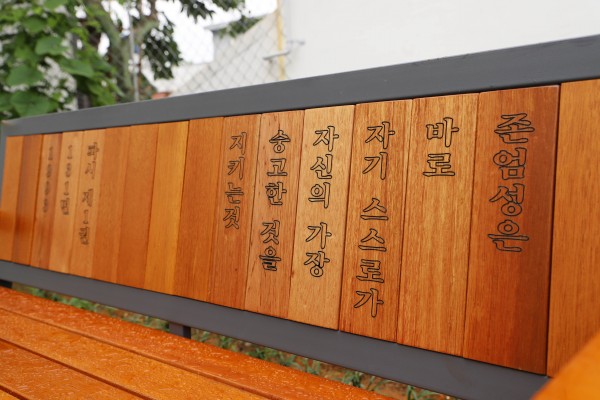 존엄성은
바로
자기 스스로가
자신의 가장
숭고한 것을
지키는것